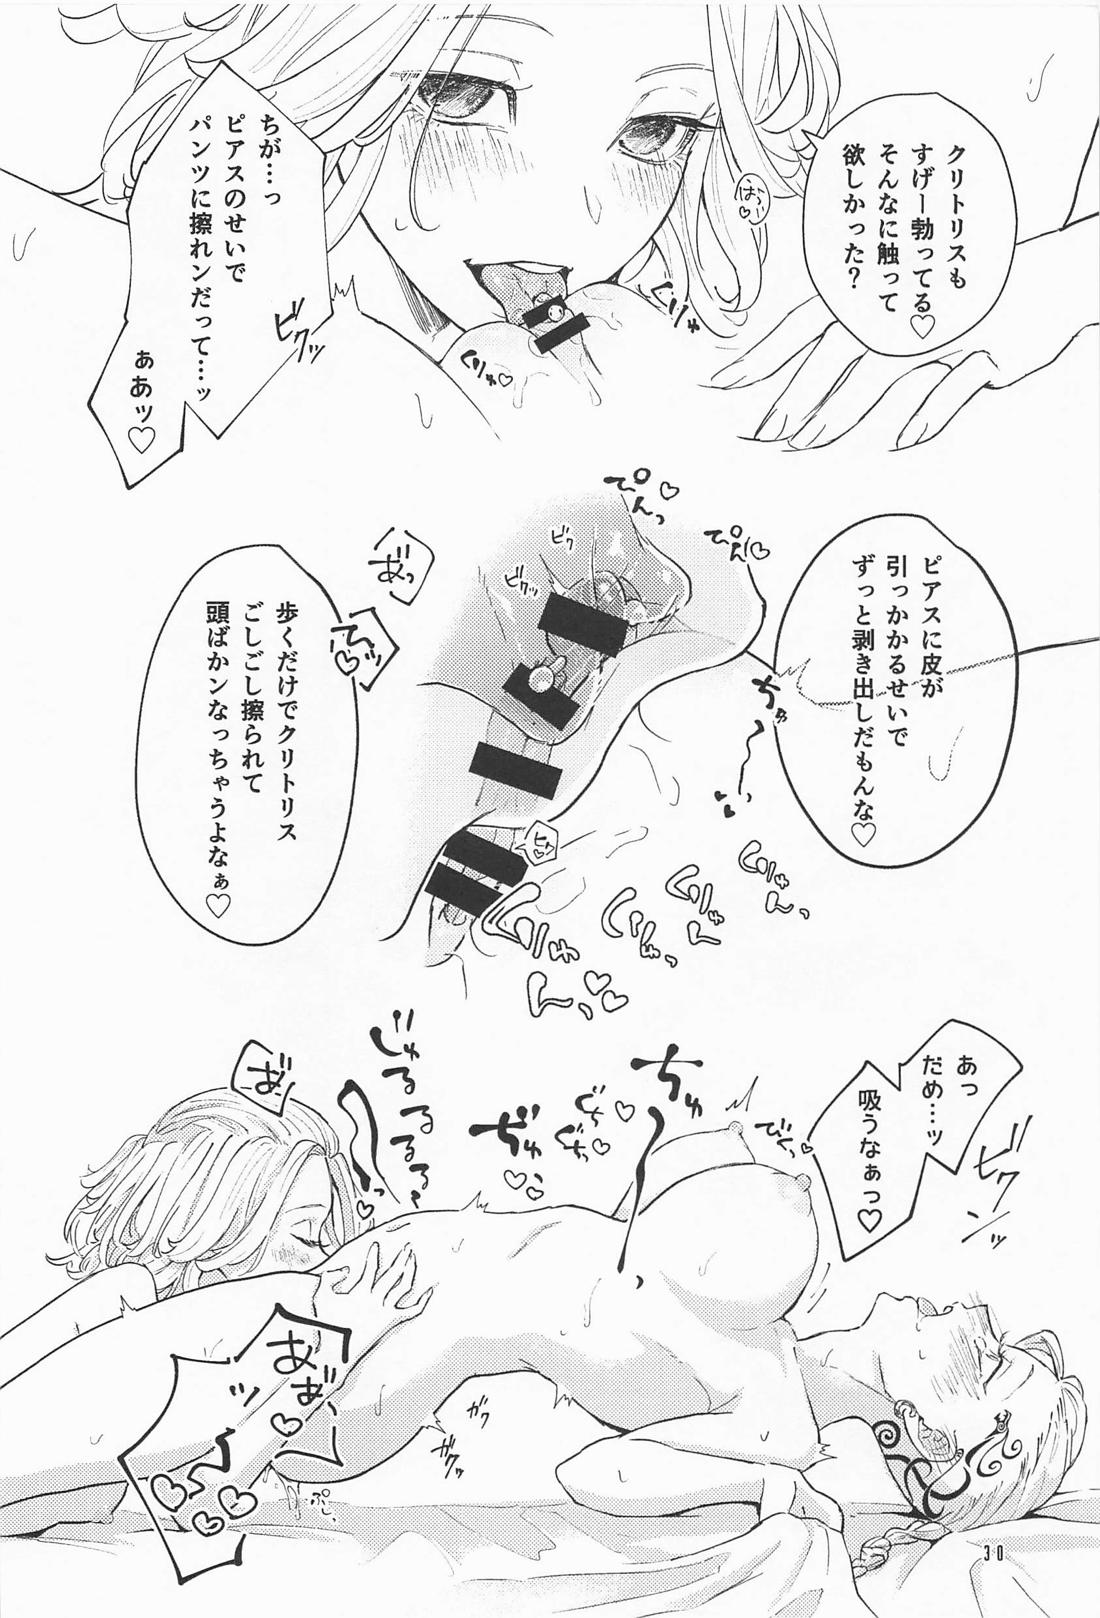 クリトリスも
すげー勃ってる♡
そんなに触って
欲しかった?
ちが…っ
ピアスのせいで
パンツに擦れンだって…ッ
ぁあッ♡
ビクッ
くりゅ
くりゅ♡
ピアスに皮が
引っかかるせいで
ずっと剥き出しだもんな♡
ぴんっ♡
ぴん♡
ビク
ビクッ
あ゛っ
歩くだけでクリトリス
ごしごし擦られて
頭ばかンなっちゃうよなぁ♡
あっ
だめ…ッ
吸うなぁっ♡
ビクンッ
びくっ♡
ちゅーっ
ぐちぐち♡
ぢゅ
じゅるるるる
あ゛
ガク
ガクッ
ぷしっ
30